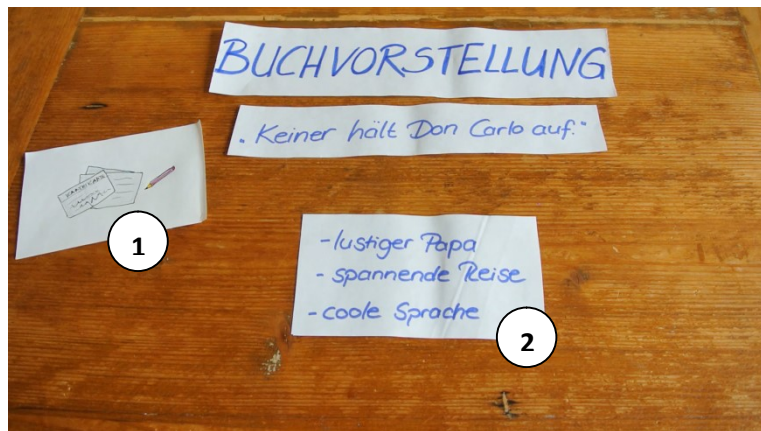 BUCHVORSTELLUNG
„Keiner hält Don Carlo auf."
1
- lustiger Papa
- spannende Reise
- coole Sprache
2